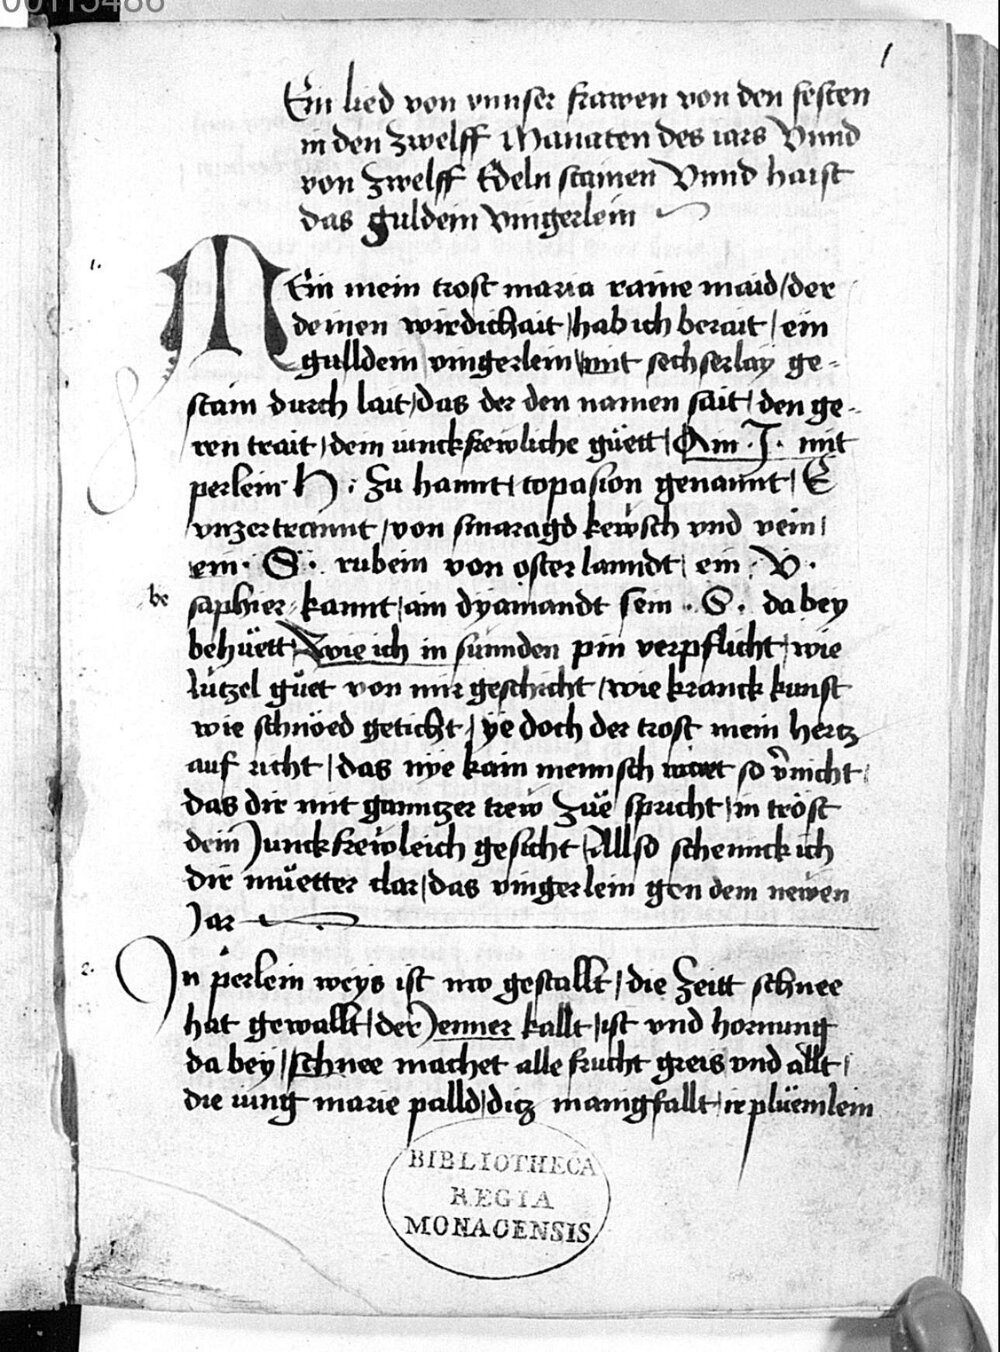 00115486
1
Ein lied von vnnser frawen von den festen
in den zwelff Manaten des iars Vnnd
von zwelff Edeln stainen Vnnd haist
das guldein vingerlein
1.
MEin mein trost maria raine maid / der
deinen wirdichait / hab ich berait / ein
gulldein vingerlein / mit sechserlay ge-
stain durch lait / das der den namen sait / den ge-
ren trait / dein iunckfrewliche güett / Ain . J . mit
perlein H . zu hannt / topasion genannt / E
vnzertrannt / von smaragd kewsch vnd vein /
ein . S . rubein von osterlanndt / ein . V .
be saphier kannt / ain dyamandt sein . S . da bey
behüett / Wie ich in sunnden pin verpflicht / wie
lützel guet von mir geschicht / wie kranck kunst
wie schnöed geticht / ye doch der trost mein hertz
auf richt / das nye kain mennsch so vernicht /
das dir mit ganntzer trew zue spricht / in tröst
dein Junckfrewleich gesicht / Allso schennck ich
dir muetter clar / das vingerlein gen dem newen
Jar
2. In perlein weys ist nw gestallt / die zeitt schnee
hat gewallt / der Jenner kallt / ist vnd hornung
da bey / schnee machet alle frucht greis vnd allt /
die iung marie palld / ditz manigfallt / ir plüemlein
BIBLIOTHECA
REGIA
MONACENSIS